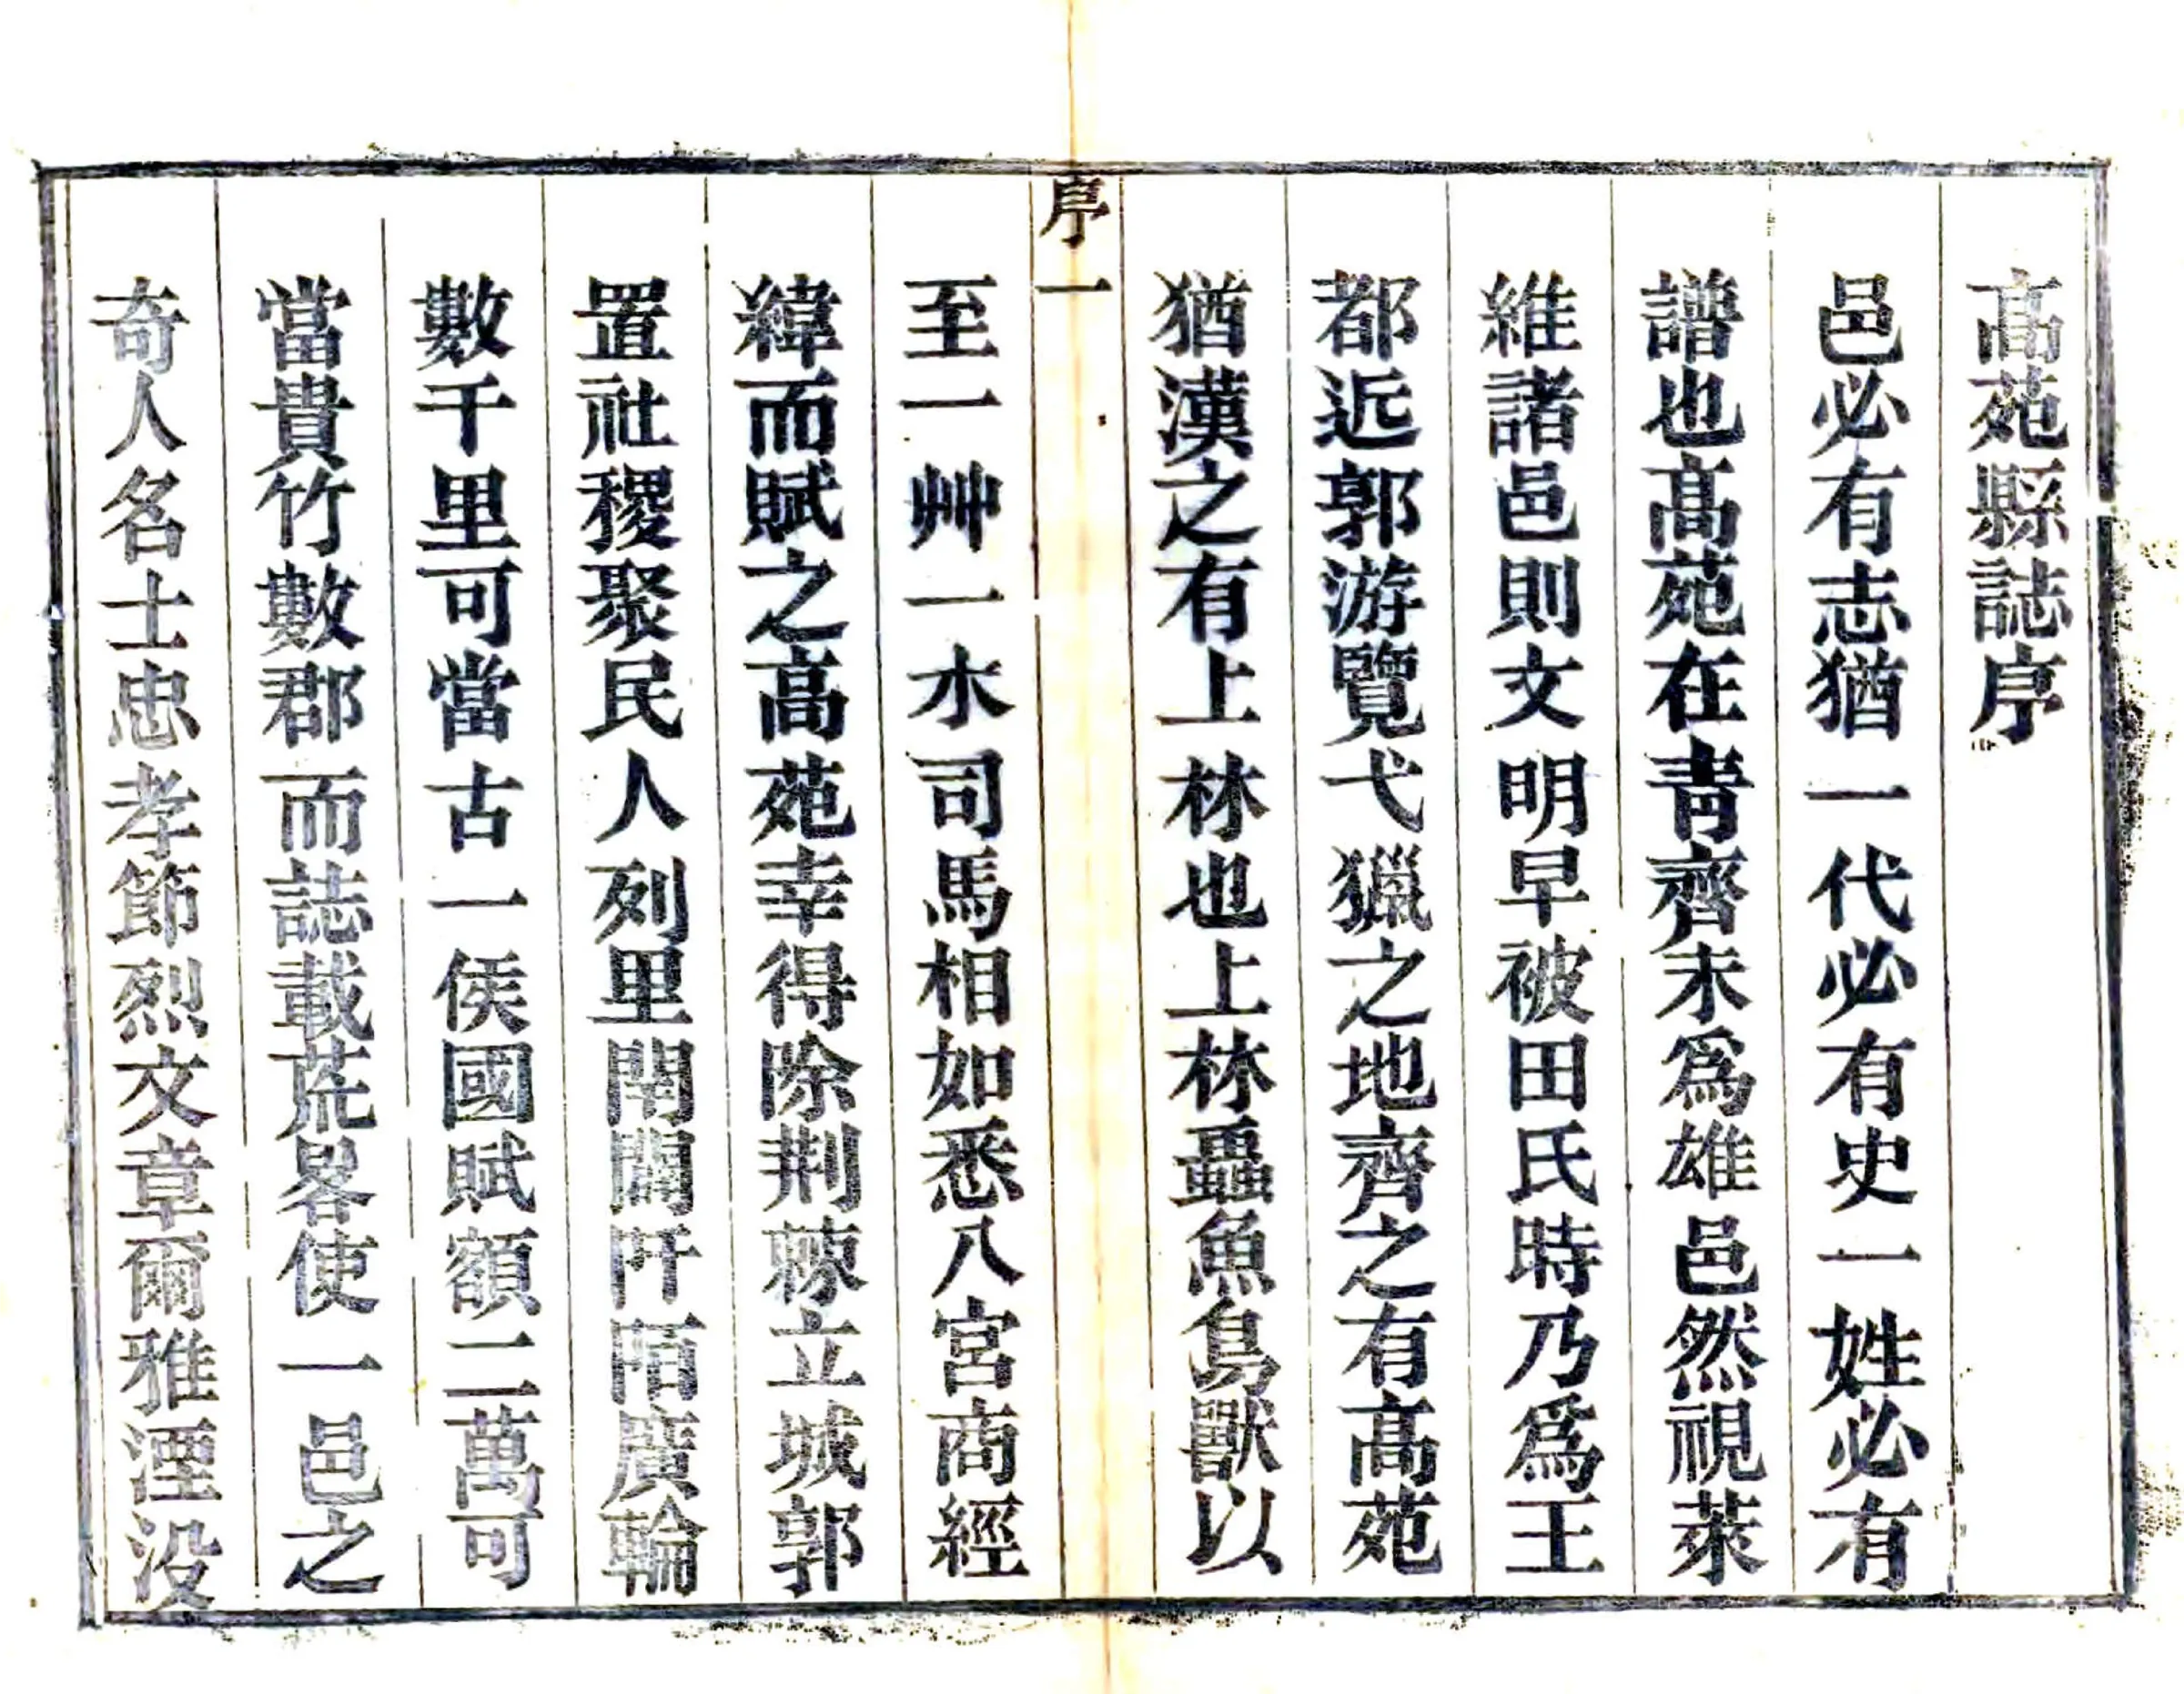 高苑縣誌序
邑必有志猶一代必有史一姓必有
譜也高苑在青齊未爲雄邑然視萊
維諸邑則文明早被田氏時乃爲王
都近郭游覽弋獵之地齊之有高苑
猶漢之有上林也上林蟲魚鳥獸以
序一
至一艸一木司馬相如悉八宮商經
緯而賦之高苑幸得除荆棘立城郭
置社稷聚民人列里閈闢阡陌廣輪
數千里可當古一侯國賦額二萬可
當貴竹數郡而誌載荒畧使一邑之
奇人名士忠孝節烈文章爾雅湮没